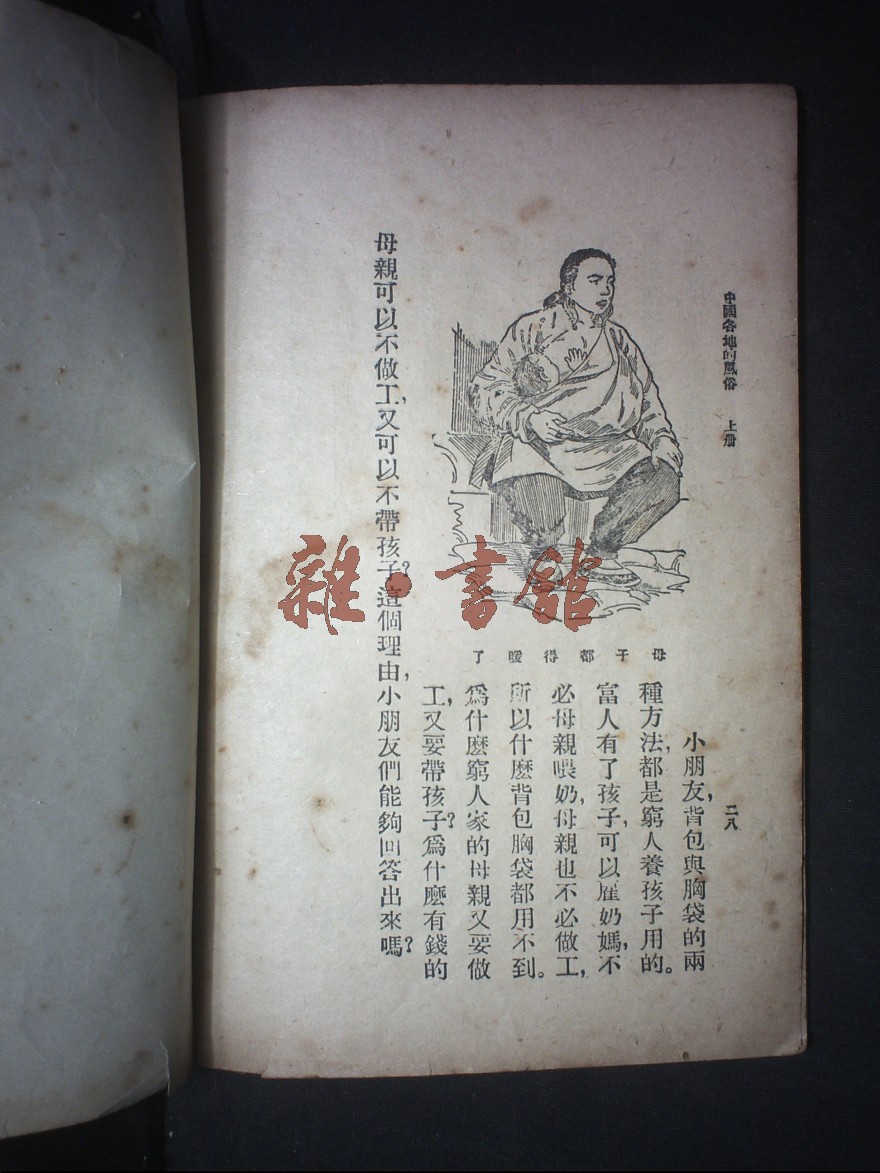 中國各地的風俗　上册
二八
母子都得暖了
小朋友，背包與胸袋的兩
種方法，都是窮人養孩子用的。
富人有了孩子，可以雇奶媽，不
必母親喂奶，母親也不必做工，
所以什麽背包胸袋都用不到。
爲什麽窮人家的母親又要做
工，又要帶孩子？爲什麽有錢的
母親可以不做工，又可以不帶孩子？這個理由，小朋友們能夠回答出來嗎？
雜·書館